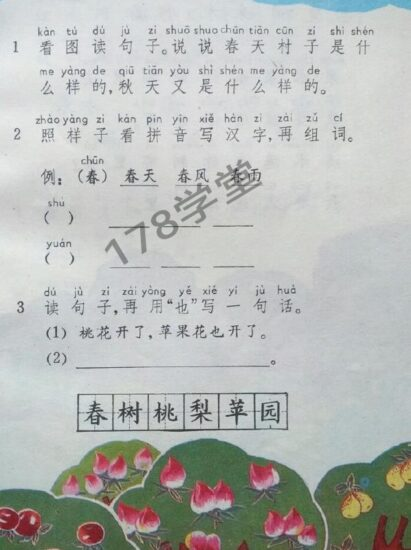 kàn tú dú jù zi shuō shuo chūn tiān cūn zi shì shén
1 看图读句子。说说春天村子是什
me yàng de qiū tiān yòu shì shén me yàng de
么样的,秋天又是什么样的。
zhào yàng zi kàn pīn yīn xiě hàn zì zài zǔ cí
2 照样子看拼音写汉字,再组词。
chūn
例:(春) 春天 春风 春雨
shù
( )
yuán
( )
dú jù zi zài yòng yě xiě yí jù huà
3 读句子,再用“也”写一句话。
(1) 桃花开了,苹果花也开了。
(2) 。
春树桃梨苹园
178学堂